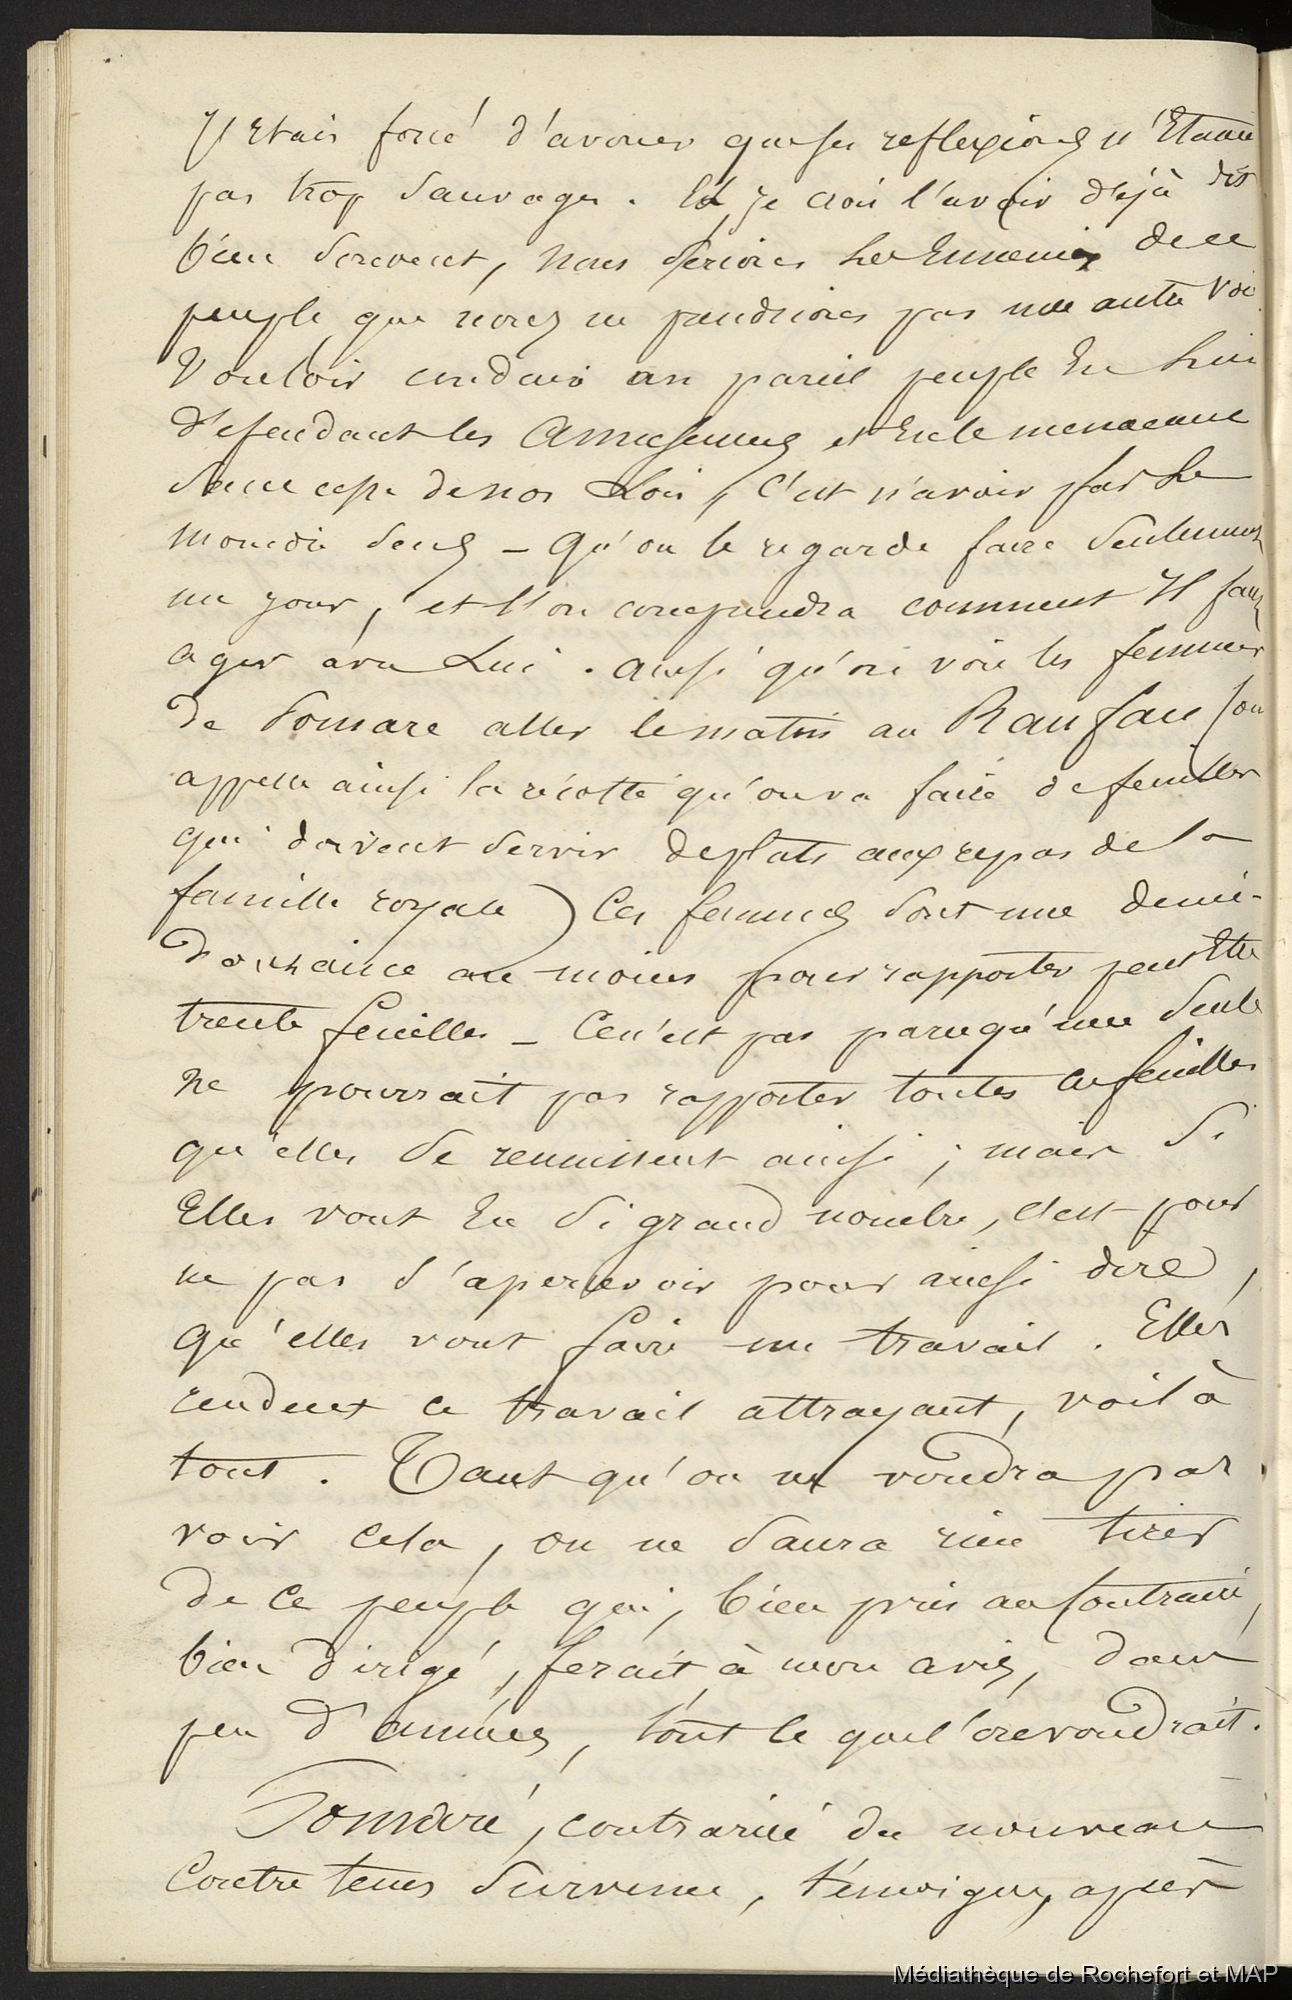 J'étais forcé d'avouer que ses reflexions n'Etaient
pas trop Sauvages. Et, je crois l'avoir déjà dit
bien Souvent, nous Serions les Ennemis de ce
peuple que nous ne prendrions pas une autre voie
Vouloir conduire un pareil peuple En lui
défendant les Amusements et En le menaçant
Sans cesse de nos Lois, C'est n'avoir pas le
moindre Sens – Qu'on le regarde faire Seulement
un jour, et l'on comprendra comment Il faut
agir avec Lui. Ainsi qu'on voie les femmes
de Pomare aller le matin au Raufau (on
appelle ainsi la récolte qu'on va faire de feuilles
qui doivent Servir de plats aux repas de la
famille royale) Ces femmes Sont une demi-
douzaine au moins pour rapporter peut Etre
trente feuilles – Ce n'est pas parcequ'une Seule
ne pourrait pas rapporter toutes ces feuilles
qu'elles Se reunissent ainsi ; mais Si
Elles vont En Si grand nombre, c'est pour
ne pas S'apercevoir pour ainsi dire,
qu'elles vont faire un travail. Elles
rendent ce travail attrayant, voilà
tout. Tant qu'on ne voudra pas
voir cela, on ne Saura rien tirer
de ce peuple qui, bien pris au Contraire,
bien dirigé, ferait à mon avis, dans
peu d'années, tout ce que l'on voudrait.
Pomaré, contrariée du nouveau
Contretems Survenu, témoigna, après